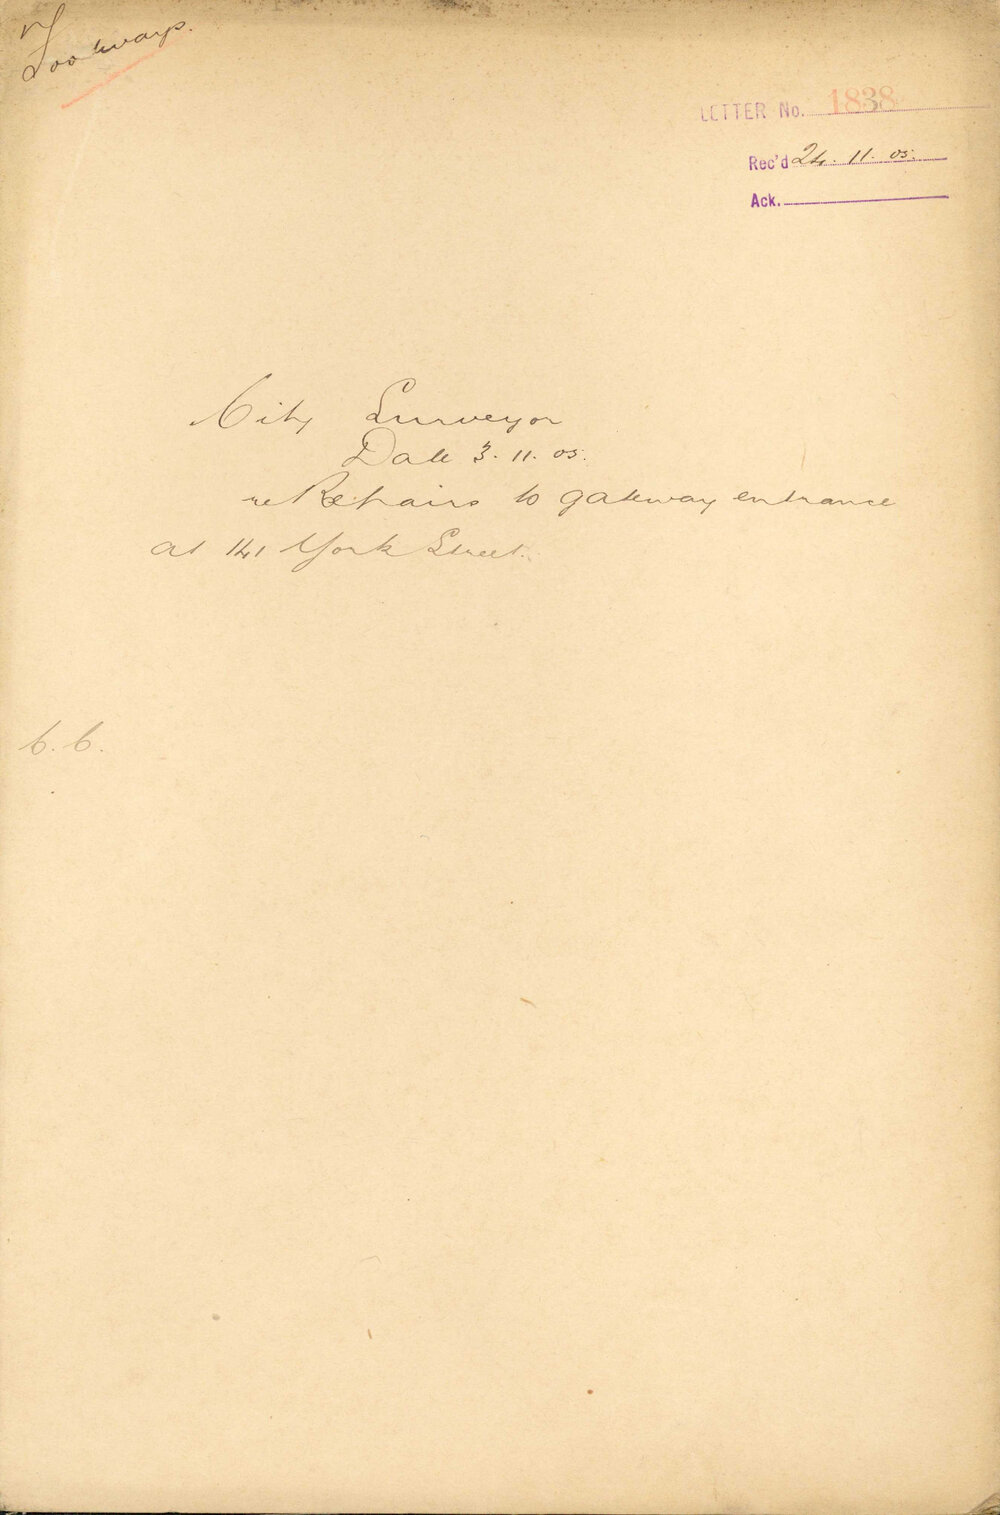 Footways.
LETTER No. 1838
Rec'd 24. 11. 05.
Ack.
City Surveyor
Date 3. 11. 05.
re Repairs to gateway entrance
at 141 York Street.
C. C.